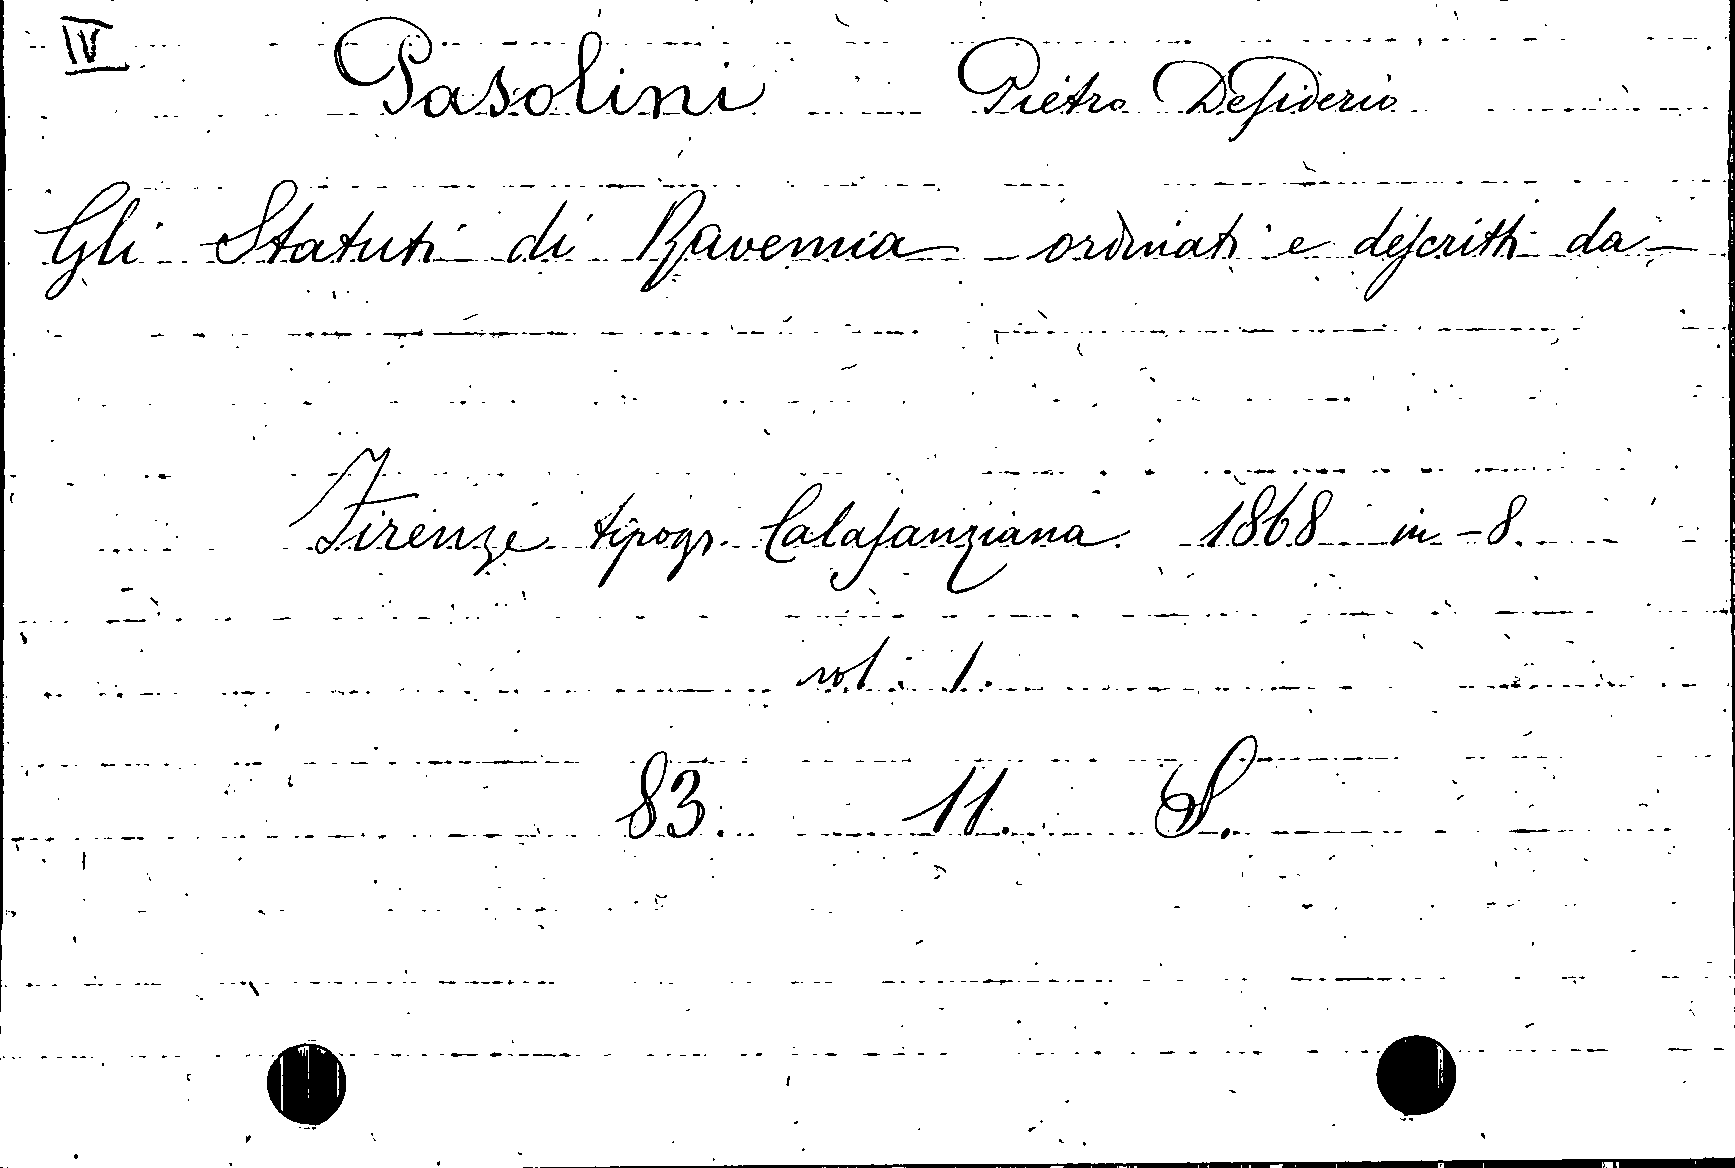 IV
Pasolini Pietro Desiderio
Gli Statuti di Ravenna ordinati e descritti da —
Firenze tipogr. Calasanziana 1868 in-8.
vol. 1.
83. 11. S.